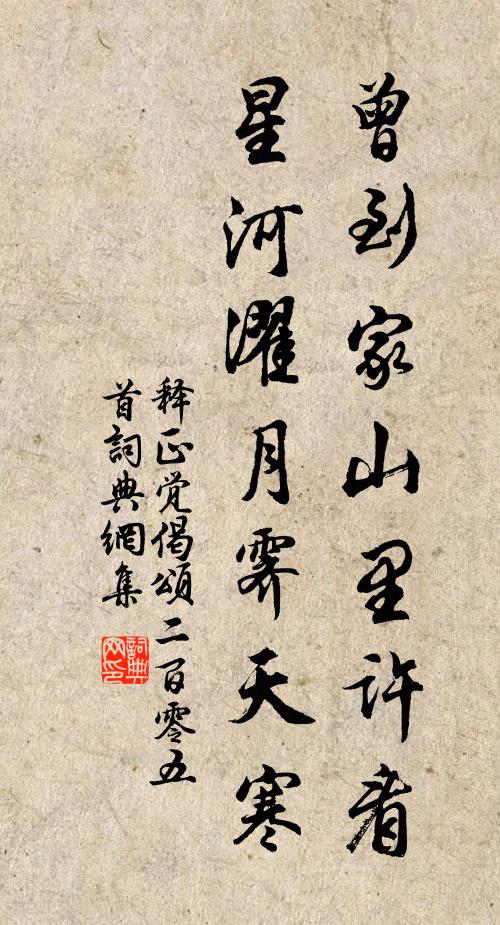 曾到家山里许看
星河濯月霁天寒
释正觉偈頌二百零五
首詞典網集
詞典
网印